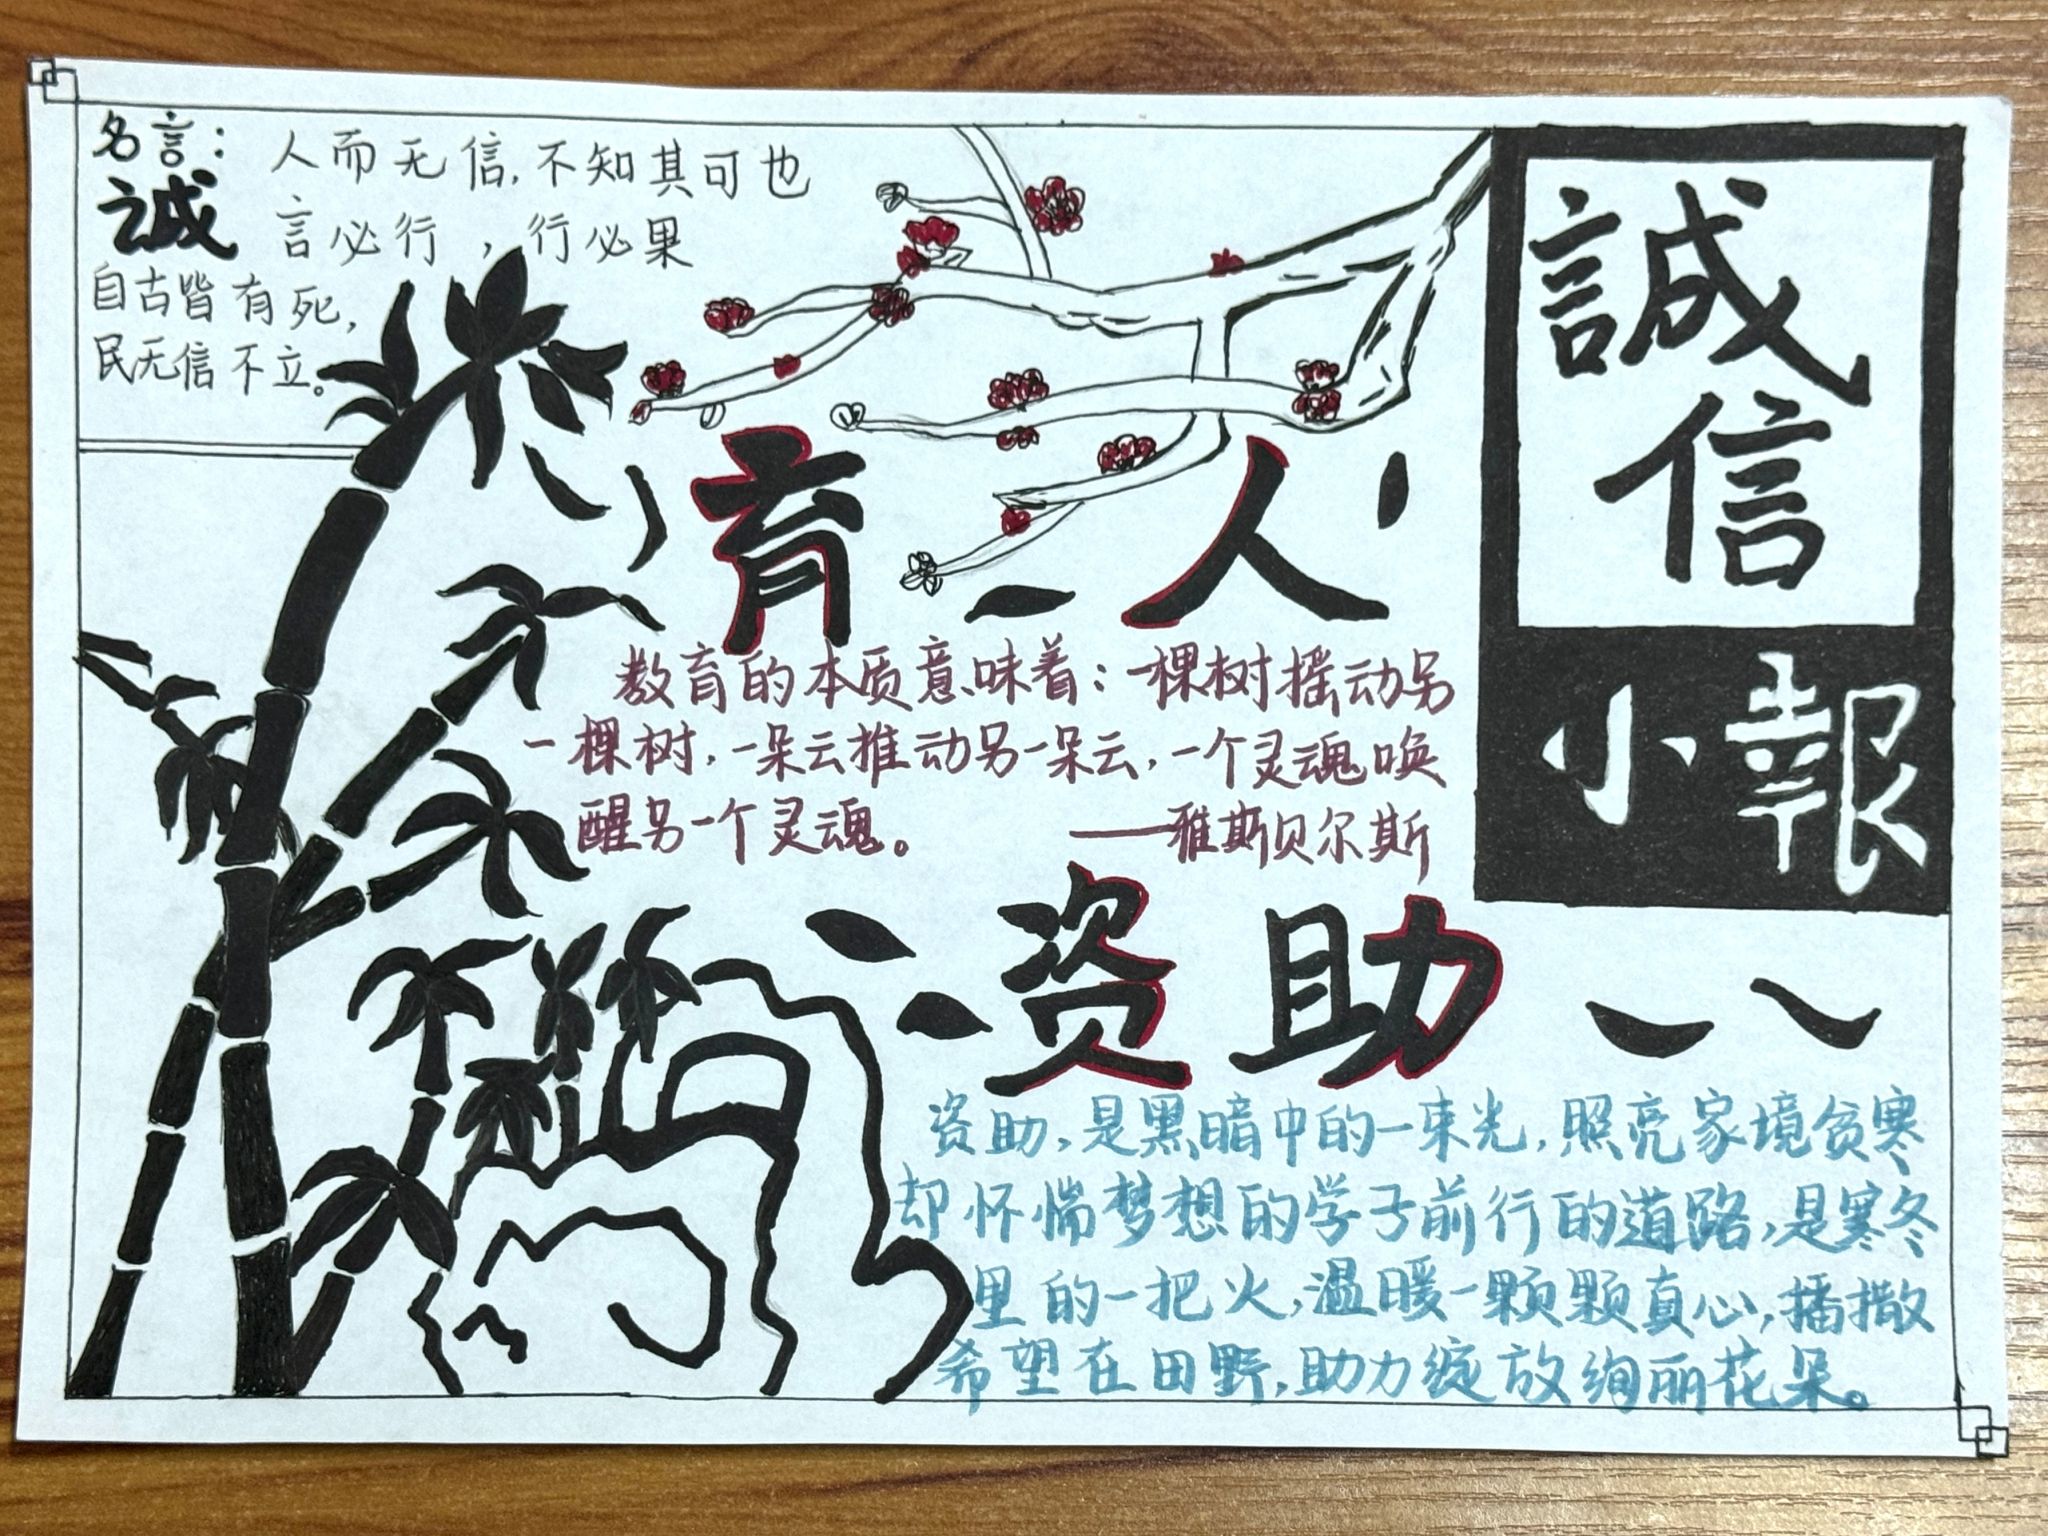 誠信
小報
名言：
誠
人而无信,不知其可也
言必行，行必果
自古皆有死,
民无信不立。
育人
教育的本质意味着：一棵树摇动另
一棵树,一朵云推动另一朵云,一个灵魂唤
醒另一个灵魂。
——雅斯贝尔斯
资助
资助,是黑暗中的一束光,照亮家境贫寒
却怀惴梦想的学子前行的道路,是寒冬
里的一把火,温暖一颗颗真心,播撒
希望在田野,助力绽放绚丽花朵。